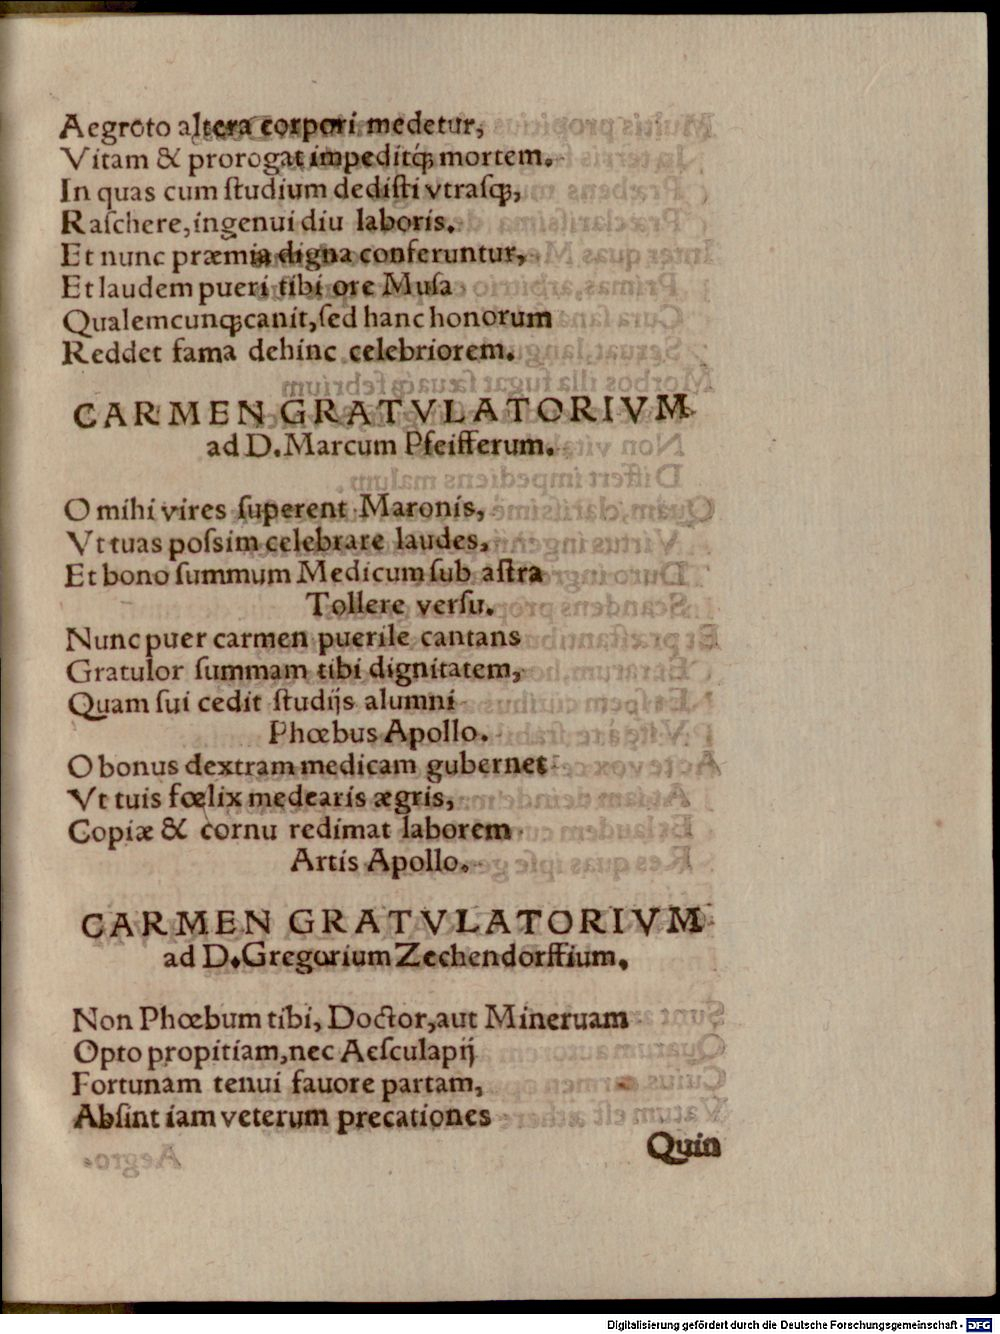 Aegroto altera corpori medetur,
Vitam & prorogat impeditq́ꝫ mortem.
In quas cum ſtudium dediſti vtraſqꝫ,
Raſchere, ingenui diu laboris.
Et nunc præmia digna conferuntur,
Et laudem pueri tibi ore Muſa
Qualemcunqꝫ canit, ſed hanc honorum
Reddet fama dehinc celebriorem.
CARMEN GRATVLATORIVM
ad D. Marcum Pfeifferum.
O mihi vires ſuperent Maronis,
Vt tuas poſsim celebrare laudes,
Et bono ſummum Medicum ſub aſtra
Tollere verſu.
Nunc puer carmen puerile cantans
Gratulor ſummam tibi dignitatem,
Quam ſui cedit ſtudijs alumni
Phœbus Apollo.
O bonus dextram medicam gubernet
Vt tuis fœlix medearis ægris,
Copiæ & cornu redimat laborem
Artis Apollo.
CARMEN GRATVLATORIVM
ad D. Gregorium Zechendorffium.
Non Phœbum tibi, Doctor, aut Mineruam
Opto propitiam, nec Aeſculapij
Fortunam tenui fauore partam,
Abſint iam veterum precationes
Quin
Digitalisierung gefördert durch die Deutsche Forschungsgemeinschaft - DFG